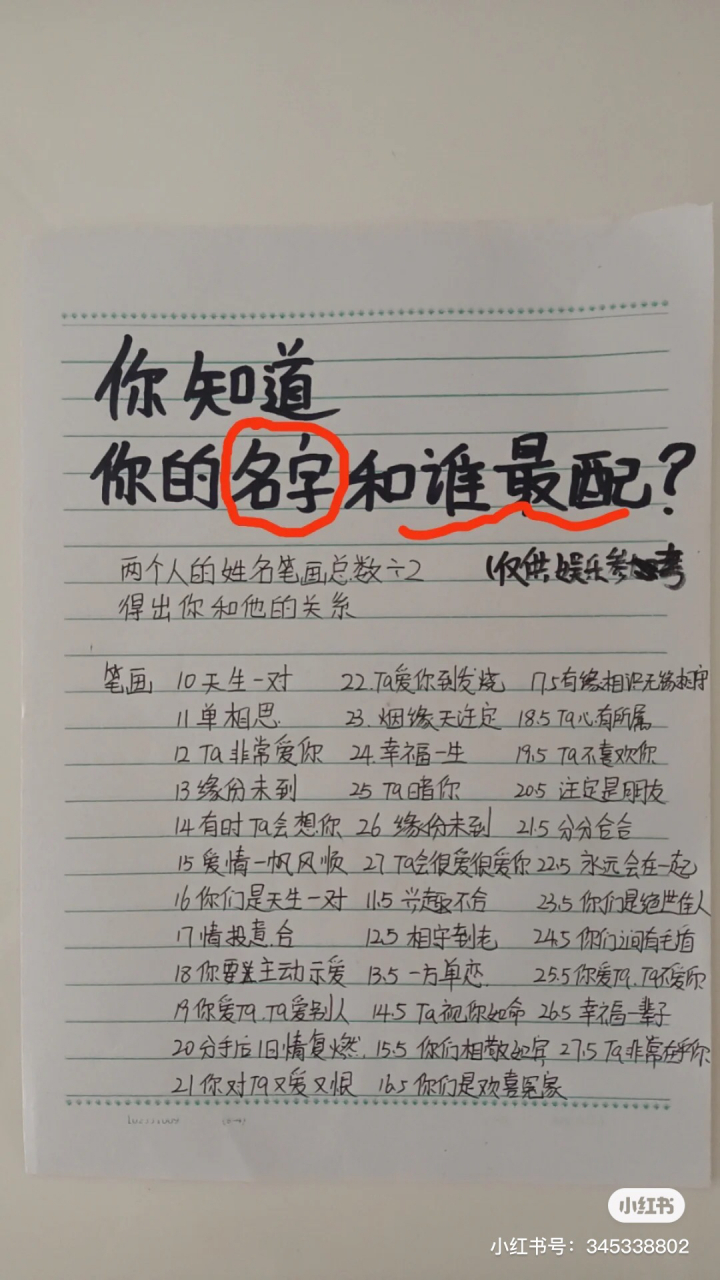 你知道
你的名字和谁最配?
两个人的姓名笔画总数÷2 (仅供娱乐参考
得出你和他的关系
笔画 10天生一对 22.Ta爱你到发烧 17.5有缘相识无缘相守
11单相思 23.烟缘天注定 18.5 Ta心有所属
12 Ta非常爱你 24.幸福一生 19.5 Ta不喜欢你
13缘份未到 25 Ta暗你 20.5 注定是朋友
14有时Ta会想你 26 缘份未到 21.5 分分合合
15 爱情一帆风顺 27 Ta会很爱很爱你 22.5 永远会在一起
16你们是天生一对 11.5 兴趣不合 23.5 你们是绝世佳人
17情投意合 12.5 相守到老 24.5 你们之间有毛盾
18你要主动示爱 13.5 一方单恋 25.5你爱Ta.Ta不爱你
19你爱Ta.Ta爱别人 14.5 Ta视你如命 26.5 幸福一辈子
20分手后旧情复燃. 15.5 你们相敬如宾 27.5 Ta非常在乎你
21你对Ta又爱又恨 16.5你们是欢喜冤家
小红书
小红书号：345338802